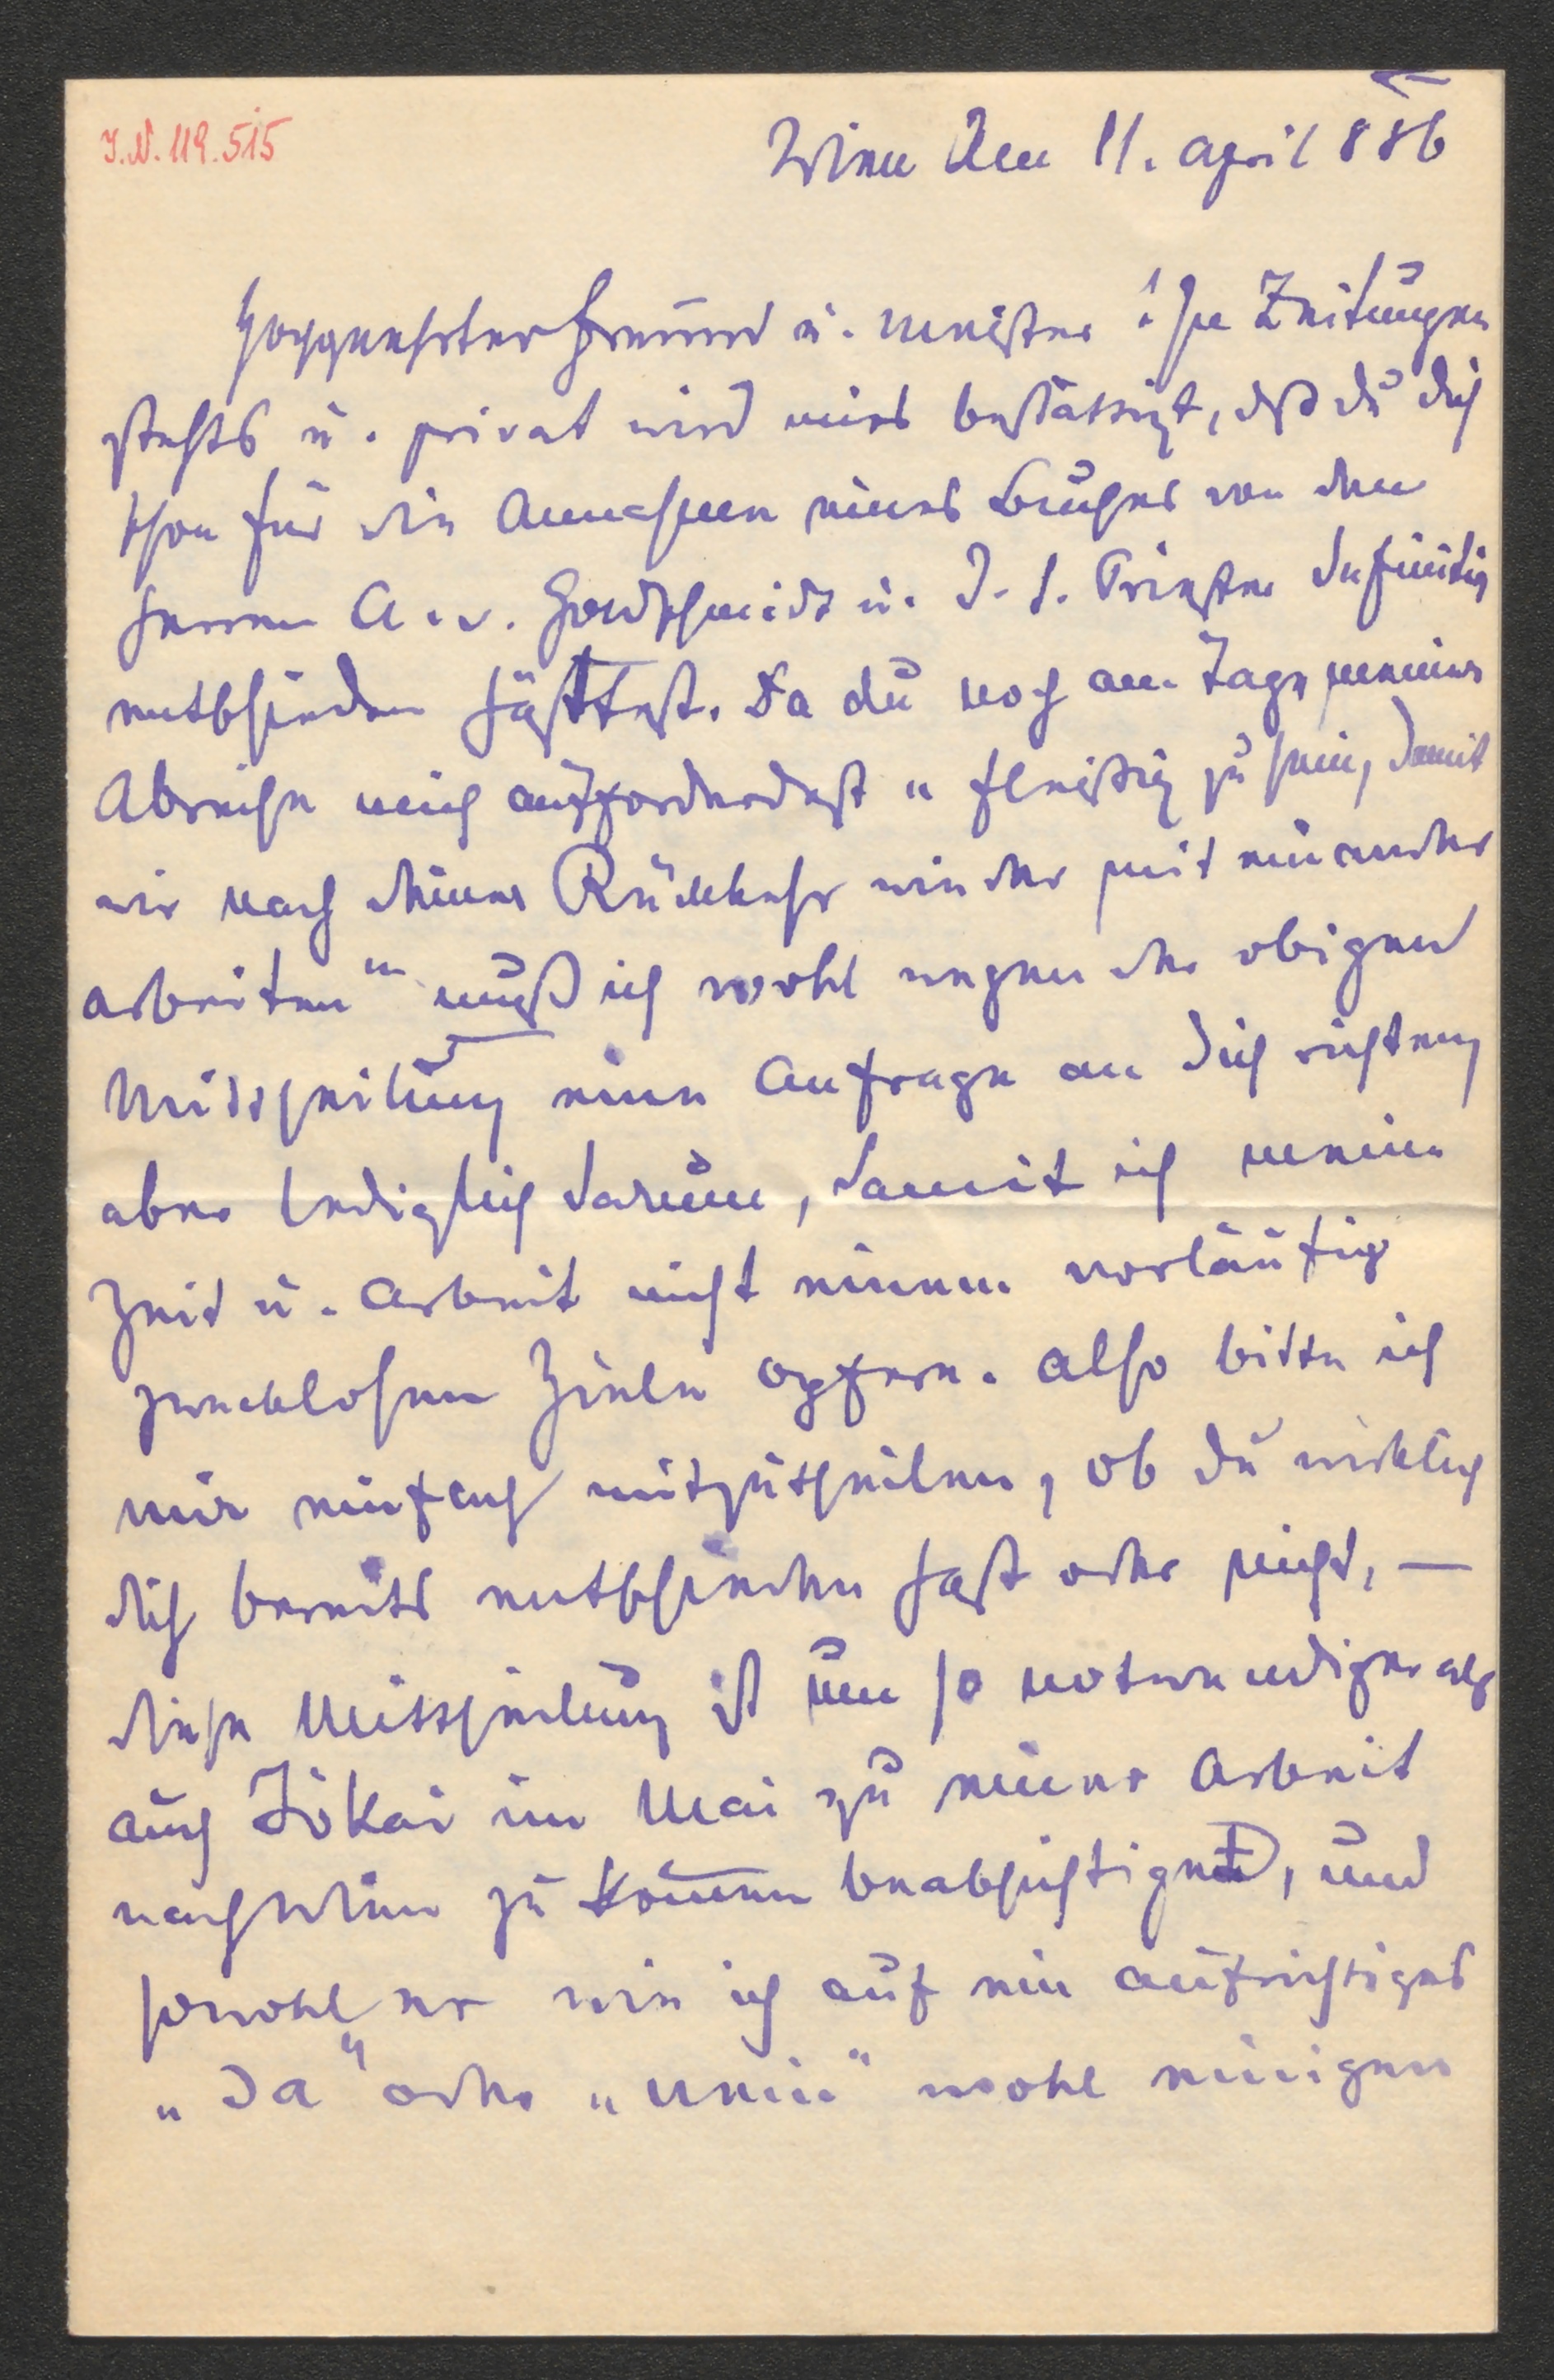 I.N. 119.515
Wien den 11. April 886
Hochgeehrter Freund u. Meister! In Zeitungen
stehts u. privat wird mirs bestättigt, daß du dich
schon für die Annahme eines Buches von den
Herren A. v. Goldschmidt u. Triesch definitiv
entschieden hättest. Da du noch am Tage meiner
Abreise mich auffordertest „fleißig zu sein, damit
wir nach deiner Rückkehr wieder mit einander
arbeiten“ muß ich wohl wegen der obigen
Mittheilung eine Anfrage an dich richten,
aber lediglich darum, damit ich meine
Zeit u. Arbeit nicht einem vorläufig
zwecklosen Ziele opfere. Also bitte ich
mir einfach mitzutheilen, ob du wirklich
dich bereits entschieden hast oder nicht, –
diese Mittheilung ist um so notwendiger als
auch Jókai im Mai zu einer Arbeit
nach Wien zu kommen beabsichtiget, und
sowohl er wie ich auf ein aufrichtiges
„Ja“ oder „Nein“ wohl einigen